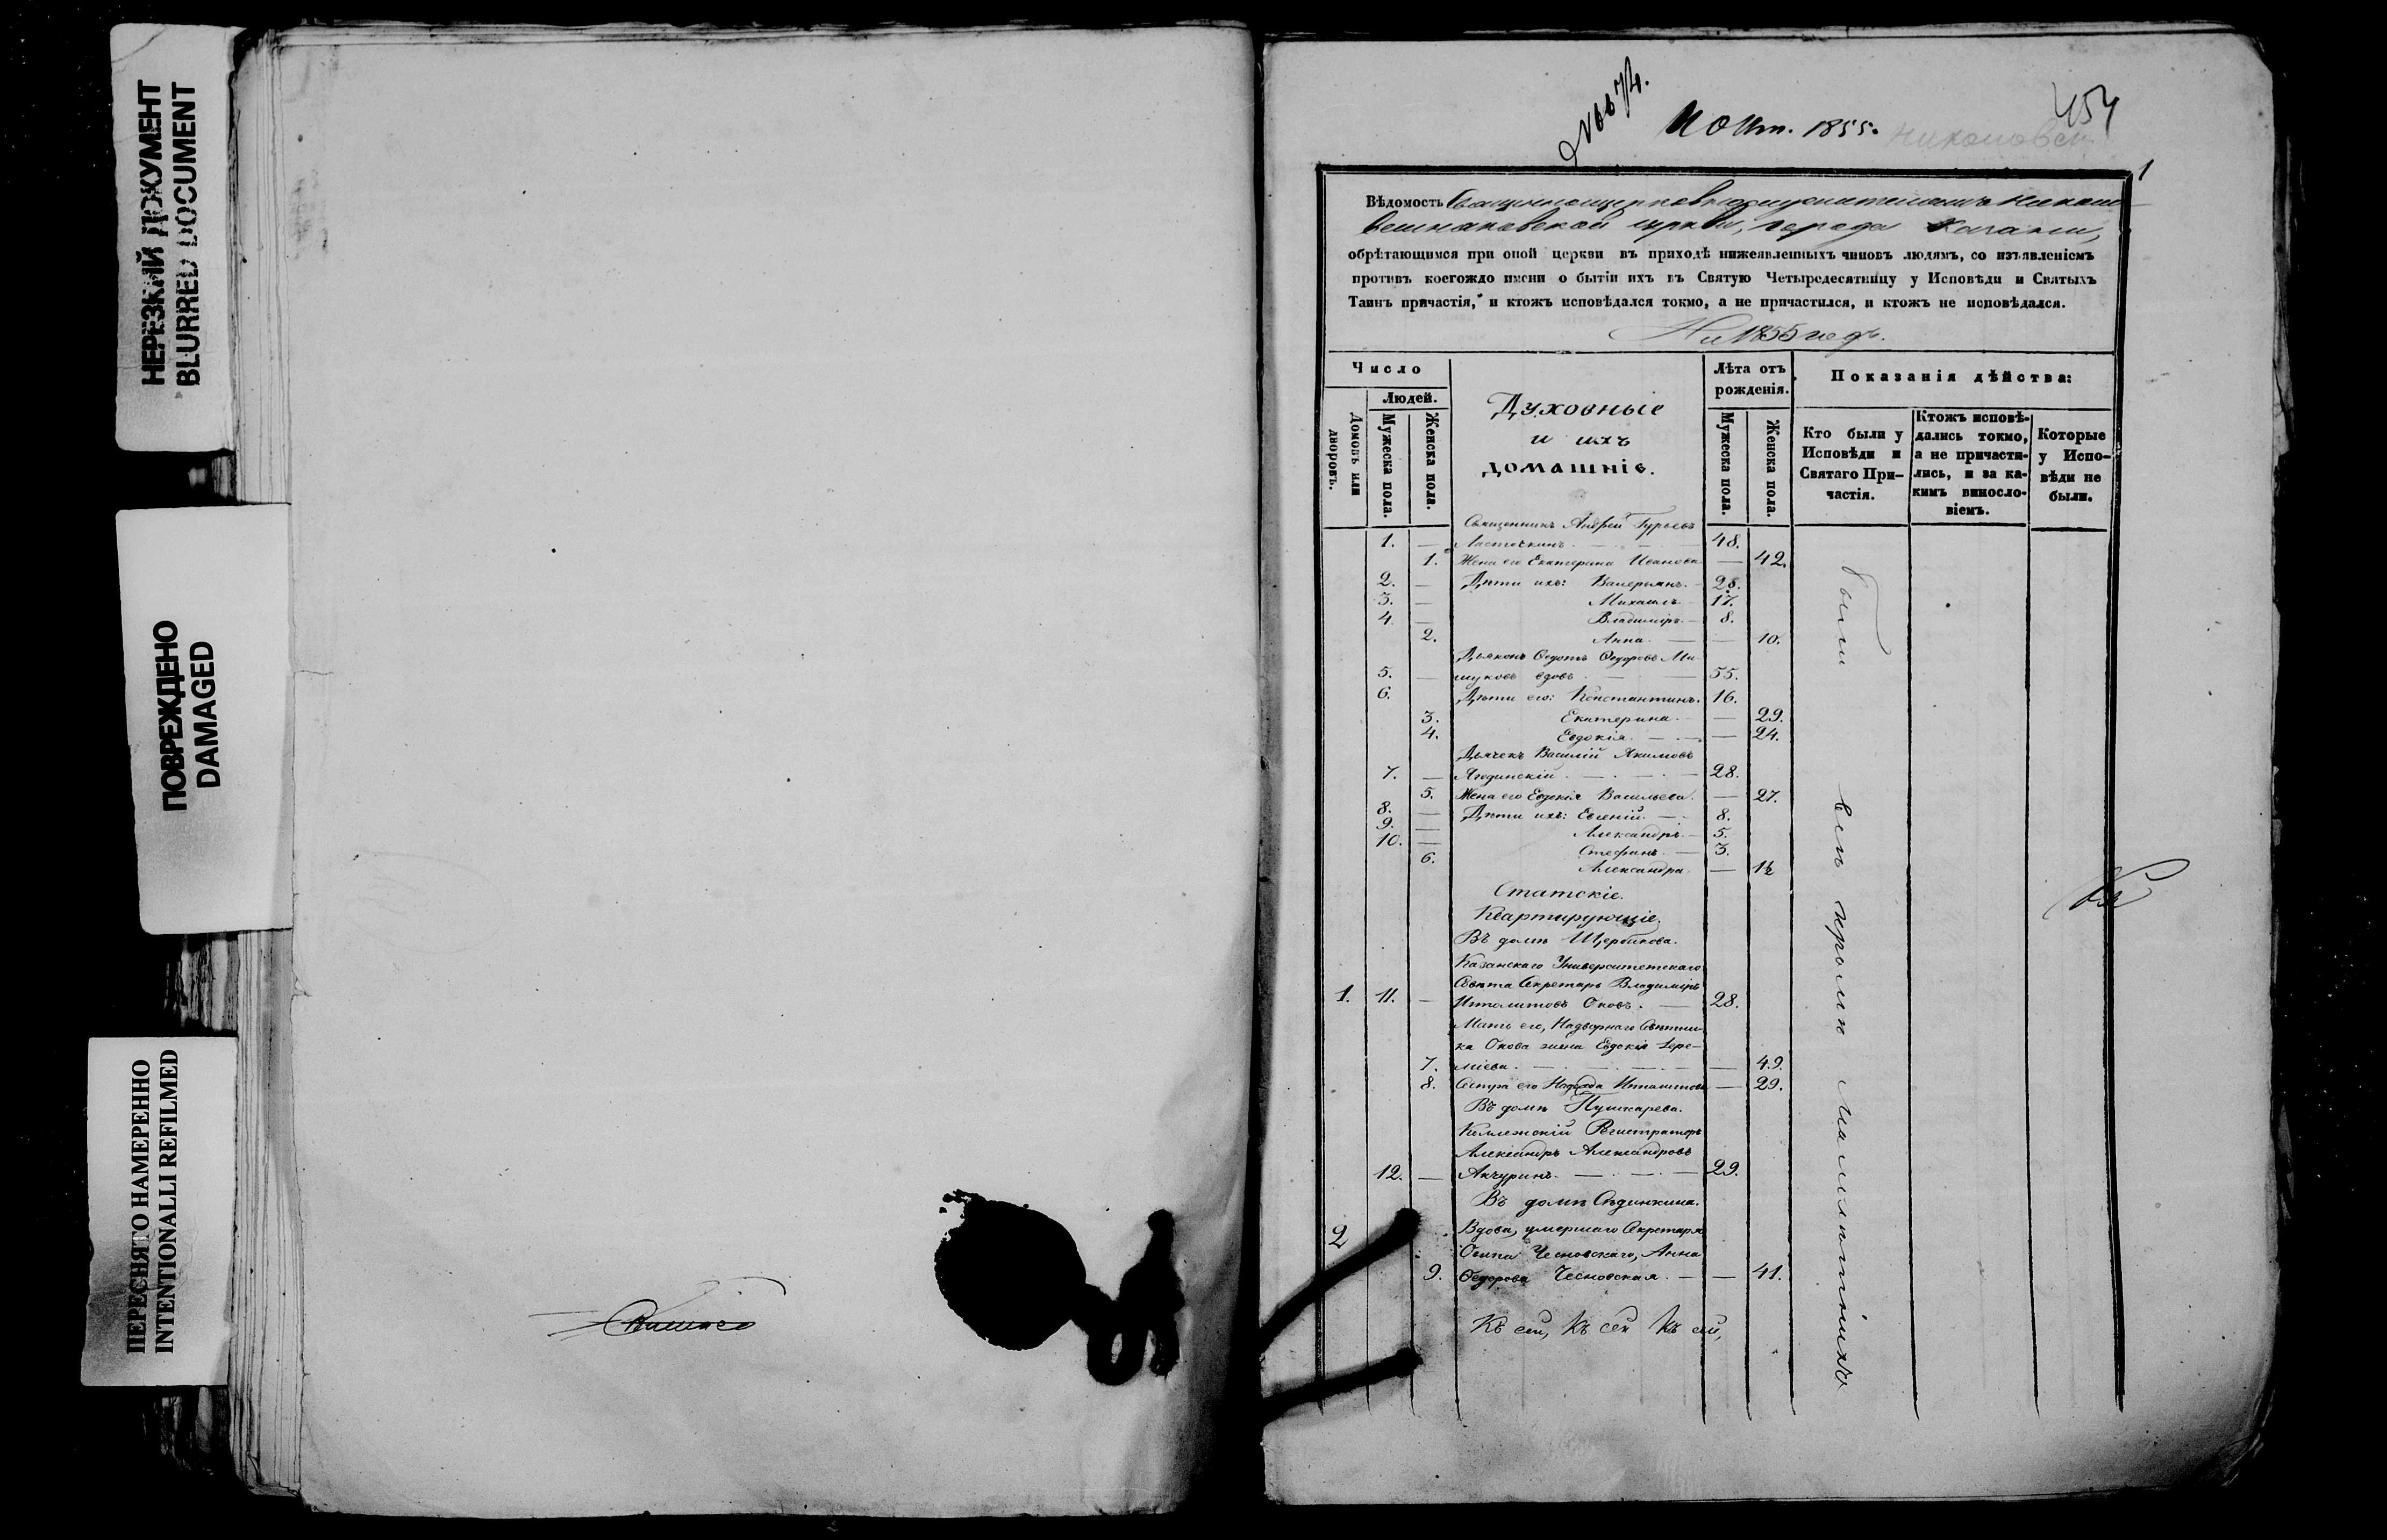 НЕРЕЗКИЙ ДОКУМЕНТ
BLURRED DOCUMENT
ПОВРЕЖДЕНО
DAMAGED
ПЕРЕСНЯТО НАМЕРЕННО
INTENTIONALLI REFILMED
1855.
454
1
Вѣдомость
церкви, города Казани,
обрѣтающимся при оной церкви въ приходѣ нижеявленныхъ чиновъ людямъ, со изъявленіемъ
противъ коегождо имени о бытіи ихъ въ Святую Четыредесятницу у Исповѣди и Святыхъ
Таинъ причастія, и ктожъ исповѣдался токмо, а не причастился, и ктожъ не исповѣдался.
На 1855 годъ.
Число
Людей.
Домовъ или дворовъ.
Мужеска пола.
Женска пола.
Духовные
и ихъ
домашніе.
Лѣта отъ рожденія.
Мужеска пола.
Женска пола.
Показанія дѣйства:
Кто были у Исповѣди и Святаго При-частія.
Ктожъ исповѣ-дались токмо, а не причасти-лись, и за ка-кимъ винослo-віемъ.
Которые у Испо-вѣди не были.
Священникъ Андрей Гурьевъ
1. — Ласточкинъ. — 48.
1. Жена его Екатерина Иванова — 42.
2. — Дѣти ихъ: Валерьянъ. — 28.
3. — Михаилъ. 17.
4. — Владиміръ. — 8.
2. Анна. — 10.
Дьяконъ Ѳедотъ Ѳедоровъ Ми-
5. — шуковъ вдовъ. — 55.
6. Дѣти его: Константинъ. 16.
3. Екатерина. — 29.
4. Евдокія. — 24.
Дьячекъ Василій Акимовъ
7. — Ягодинскій. — 28.
5. Жена его Евдокія Васильева. — 27.
8. — Дѣти ихъ: Евгеній. — 8.
9. — Александръ. — 5.
10. — Стефанъ. — 3.
6. Александра. — 1½
Статскіе.
Квартирующіе.
Въ домѣ Щербакова.
Казанскаго Университетскаго
Совѣта Секретарь Владиміръ
1. 11. — Ипполитовъ Оковъ. — 28.
Мать его, Надворнаго Совѣтни-
ка Окова жена Евдокія Іере-
7. міева. — 49.
8. Сестра его Надежда Ипполитова — 29.
Въ домѣ Пушкарева.
Коллежскій Регистраторъ
Александръ Александровъ
12. — Акчуринъ. — 29.
Въ домѣ Сѣдинкина.
2 Вдова, умершаго Секретаря
Осипа Чесновскаго, Анна
9. Ѳедорова Чесновская. — 41.
Къ сей, къ сей къ сей,
были всѣ кромѣ малолѣтнихъ